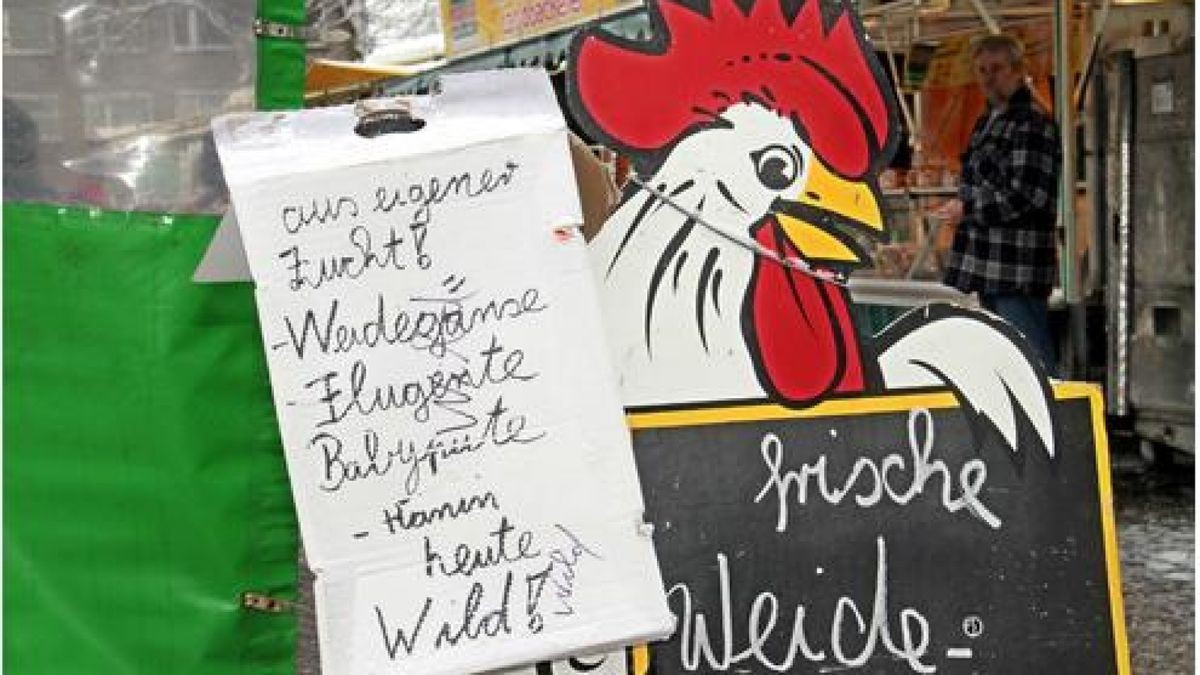 aus eigener
Zucht!
- Weidegänse
- Flugente
Babypute
- Kanin
heute
Wild!
Wild
frische
Weide-